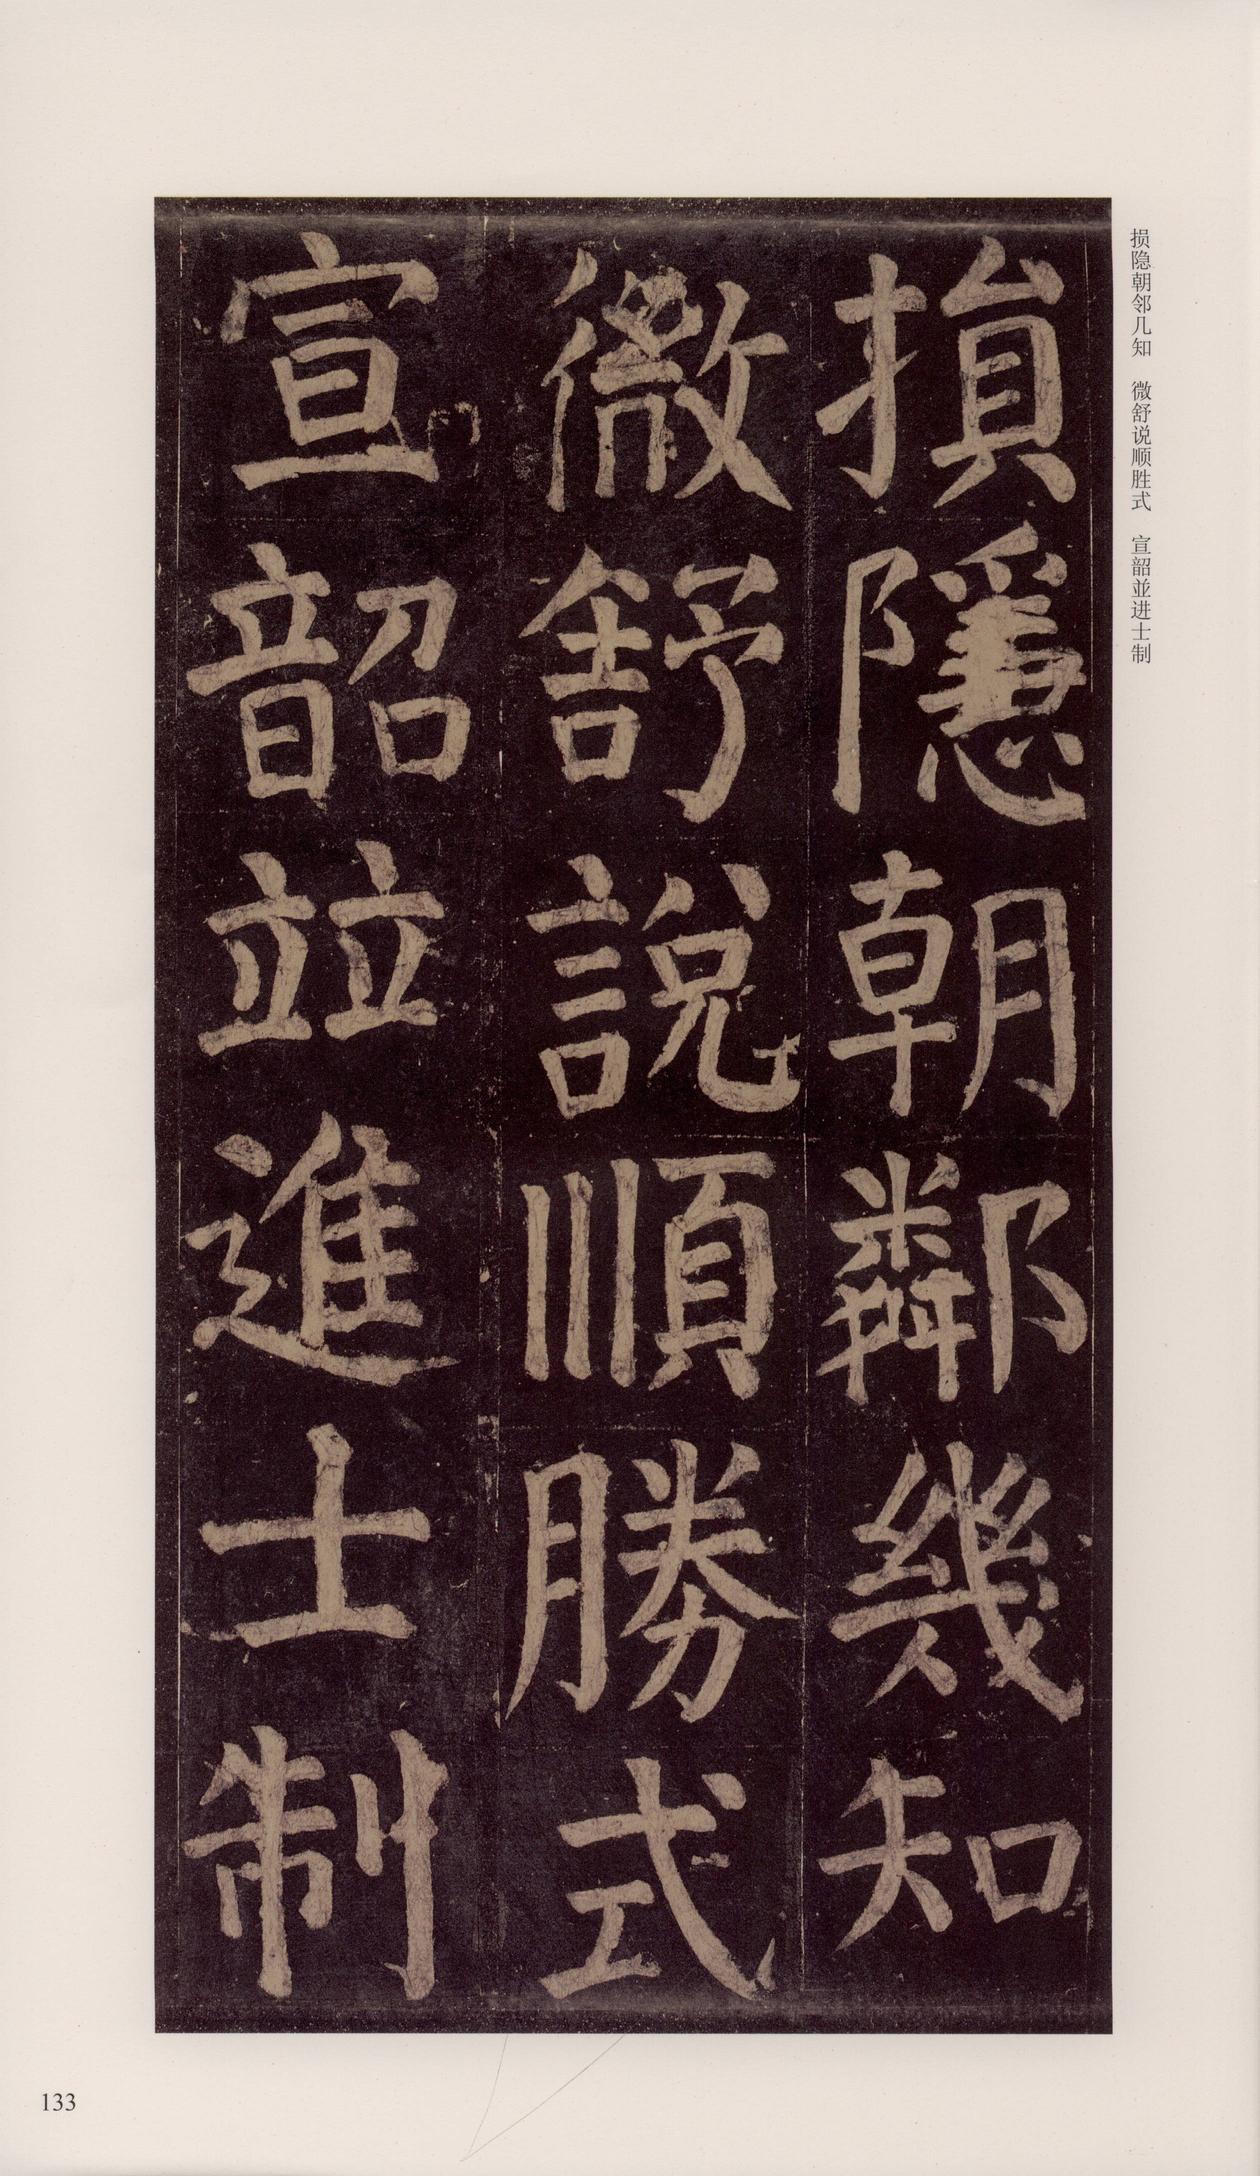 损隐朝邻几知　微舒说顺胜式　宣韶並进士制
損隱朝鄰幾知
微舒說順勝式
宣韶並進士制
133